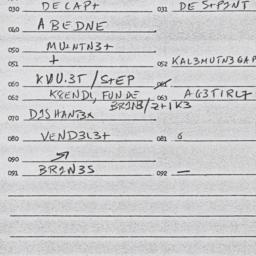 030 DECAP+ 031 DESTP2NT
040 ABEDNE
050 MU2NTN3+
051 + 052 KAL3MUTN3GAP
060 KVU.3T / STEP 061
062 KEENDI, FUNDE 063 AG3TIRL7
BR2N3/Z+1K3
070 D2SHANT3X
080 VEND3L3+ 081 6
090
091 BR2N3S 092 —